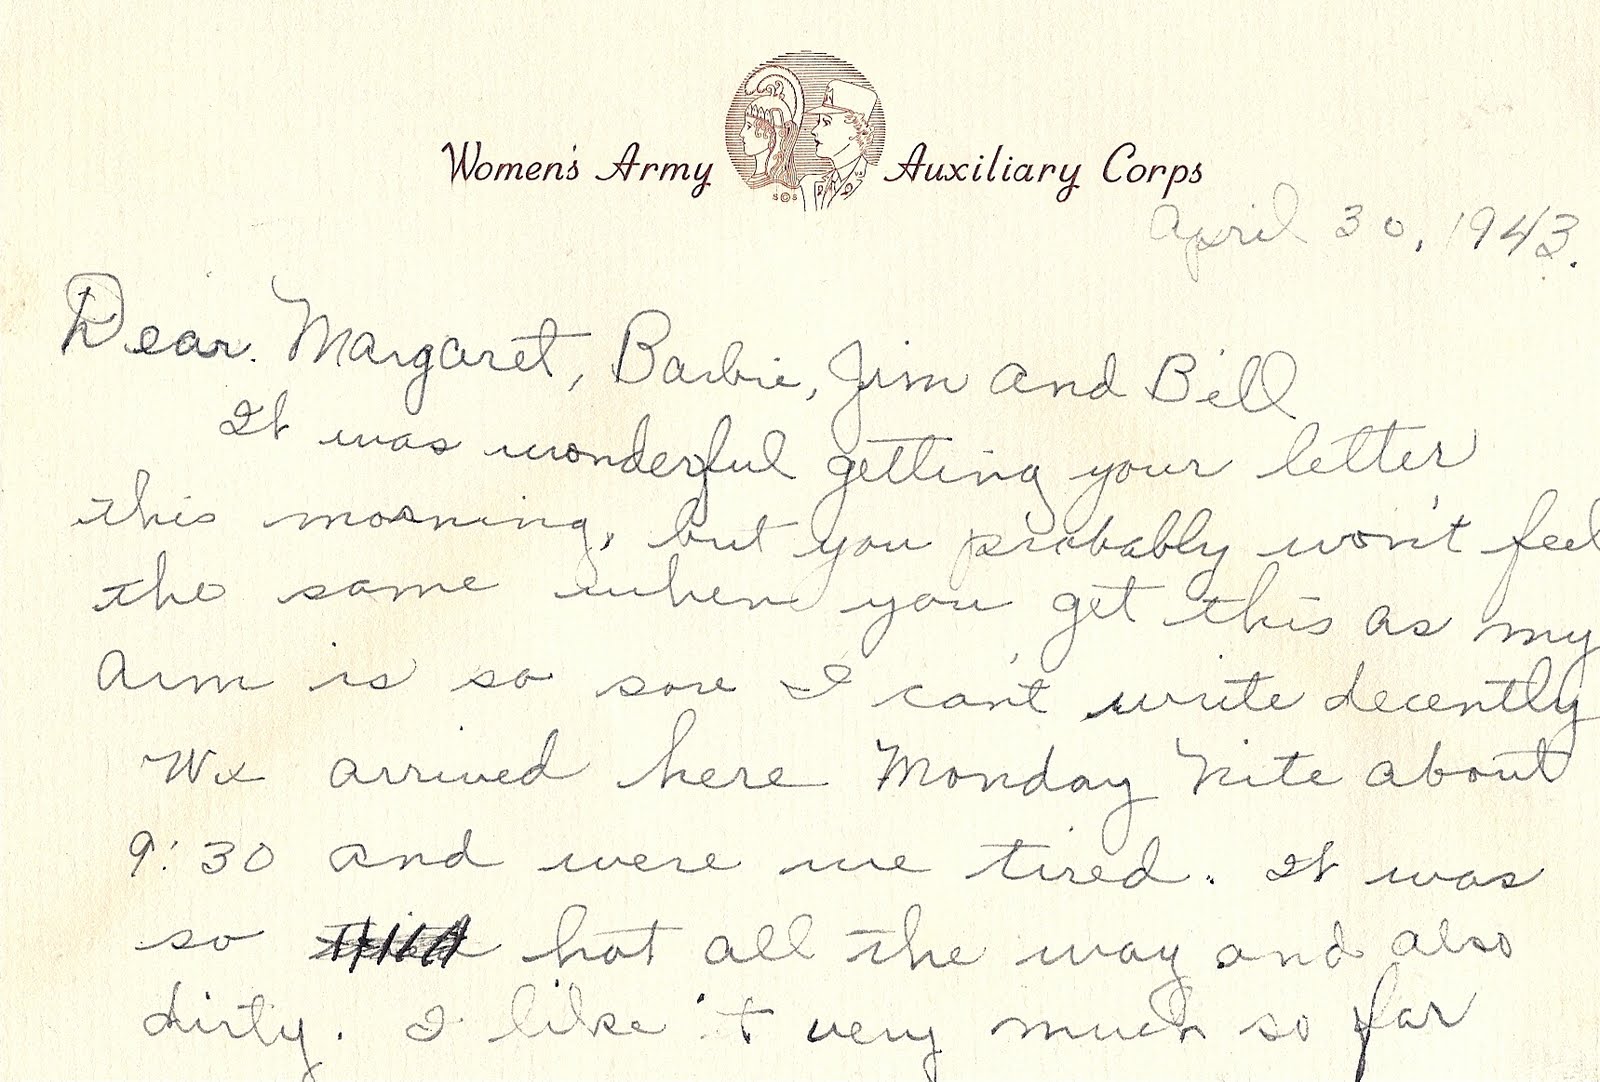 Women's Army Auxiliary Corps
S©S
April 30, 1943.
Dear Margaret, Barbie, Jim and Bill
It was wonderful getting your letter
this morning, but you probably won't feel
the same when you get this as my
arm is so sore I can't write decently
We arrived here Monday Nite about
9:30 and were we tired. It was
so hot all the way and also
dirty. I like 't very much so far